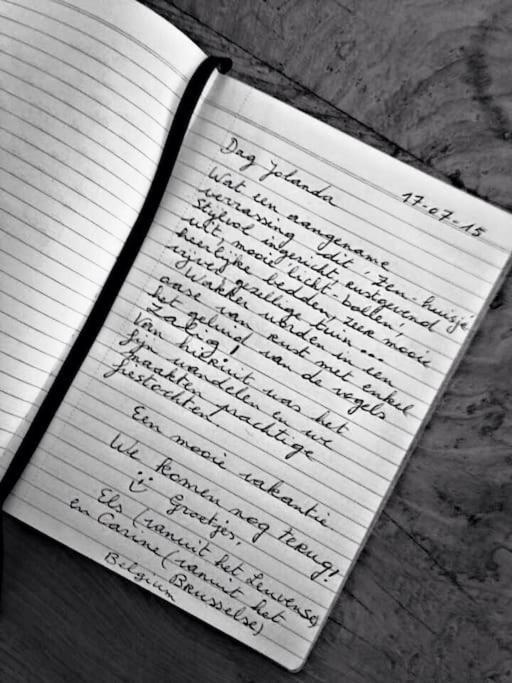 17-07-15
Dag Jolanda
Wat een aangename
verrassing dit 'zen-huisje'
stijlvol ingericht, rustgevend
wit, mooie licht-bollen,
heerlijke bedden, zeer mooie
vrije gezellige tuin...
Wakker worden in een
oase van rust met enkel
het geluid van de vogels
Zalig!
Van hieruit was het
fijn wandelen en we
maakten prachtige
fietstochten.
Een mooie vakantie
We komen nog terug!
Groetjes.
Els (vanuit het Leuvense)
en Carine (vanuit het
Brusselse)
Belgium